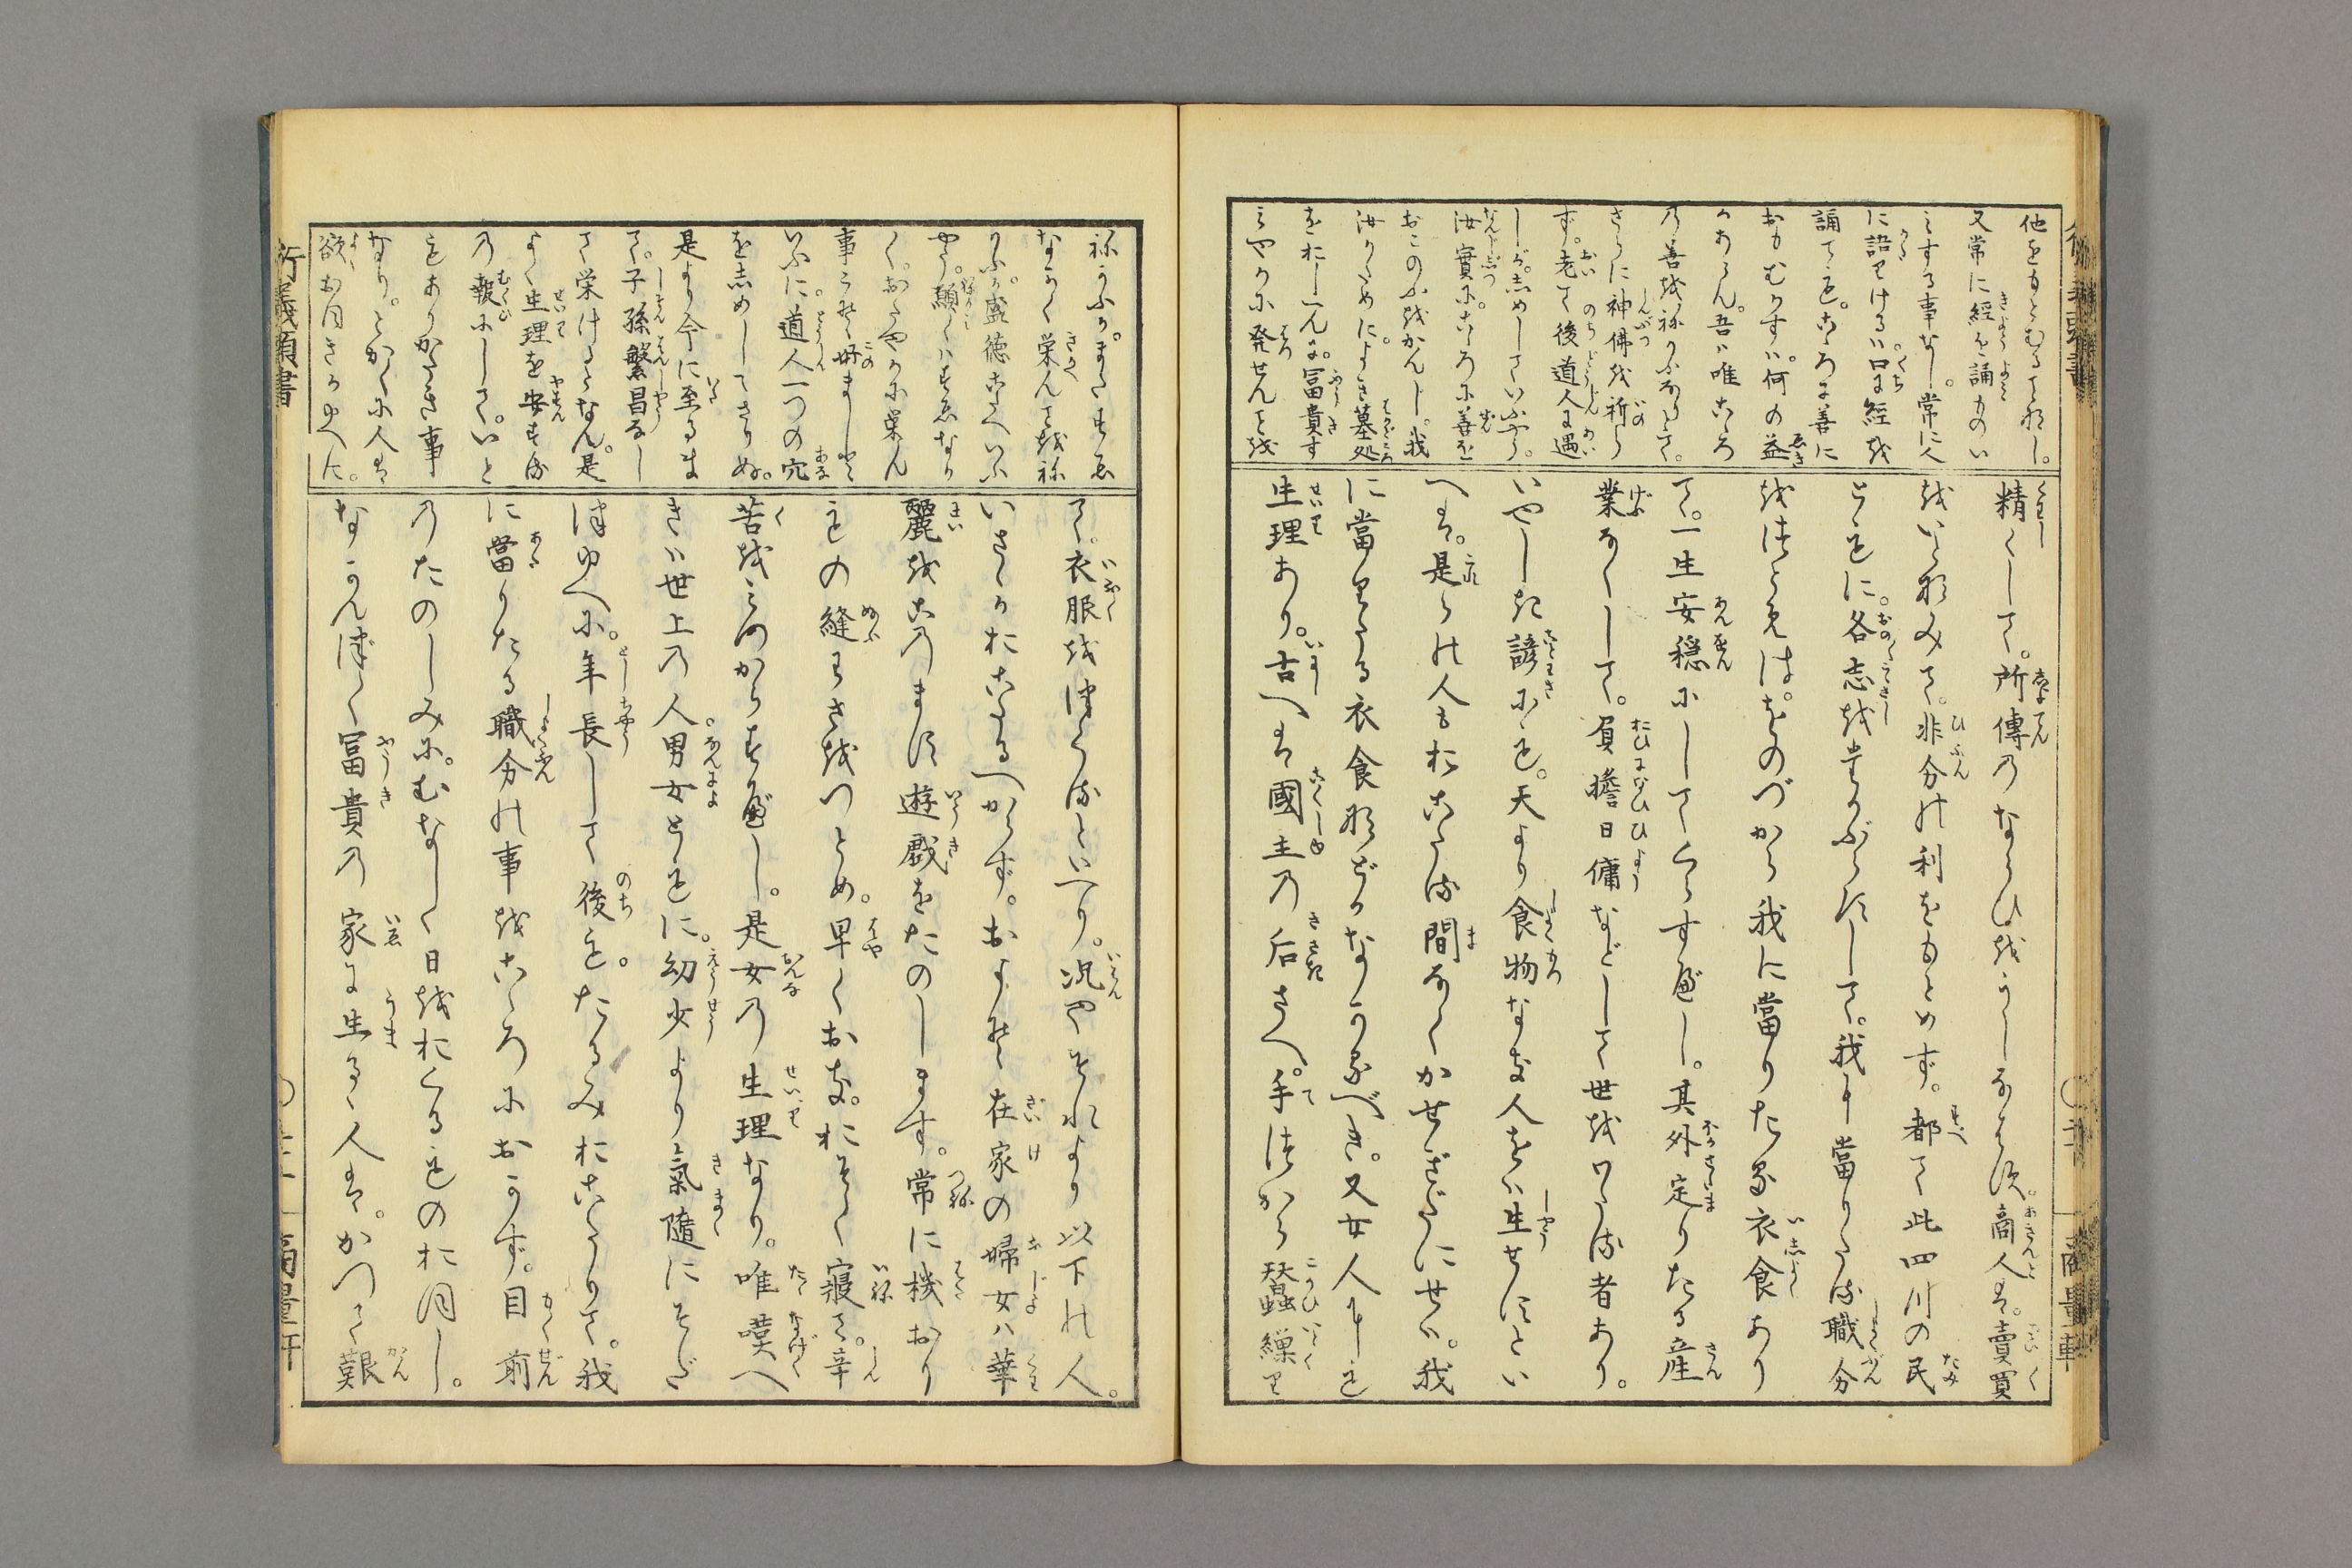 他をもとむる事なし。
又常に経を誦せんと
する事なし。常に人
に語りけるは口に経を
誦ても。こゝろに善に
おもむかずは。何の益
かあらん。吾は唯こゝろ
の善をねがふなりとて。
さらに神佛を祈ら
ず。老て後道人に遇
しが。しめしていふやう。
汝實に。こゝろに善を
おこのふをかんじ。我
汝がために。よき墓処
をおしへん。冨貴す
みやかに発せんを
精くして。所傳のならひをうしなはず。商人は。賣買
をいとなみて。非分の利をもとめず。都て此四川の民
ともに。各志をたかぶらずして。我に當りたる職分
をつとめば。をのづから我に當りたる衣食あり
て。一生安穏にしてくらすべし。其外定りたる産
業なくして。負擔日傭などして世をわたる者あり。
いやしき諺にも。天より食物なき人をは生せずとい
へば。是らの人もおこたる間なくかせぎだにせは。我
に當りたる衣食などかなかるべき。又女人にも
生理あり。古へは國主の后さへ。手づから蠶繰り
ねがふが。またすゑ
ながく栄んをね
がふか。盛徳こたへいふ
やう。願くはすゑなが
く。おだやかに栄ん
事こそ好ましと
いふに。道人一つの穴
をしめしてさりぬ。
是より今に至るま
て。子孫繁昌なし
て栄けるとなん。是
よく生理を安する
の報にして。いと
もありがたき事
なり。とかくに人は
欲おほきがゆへに。
て。衣服をつくるといへり。况やそれより以下の人。
いさゝかおこたるへからず。およそ在家の婦女は華
麗をこのまず遊戯をたのします。常に機おり
もの縫わざをつとめ。早くおき。おそく寝て。辛
苦をみつからすべし。是女の生理なり。唯嘆へ
きは世上の人男女ともに。幼少より氣随にそだ
つゆへに。年長して後も。たるみおこたりて。我
に當りたる職分の事をこゝろにおかず。目前
のたのしみに。むなしく日をおくるものおほし。
なかんづく冨貴の家に生るゝ人は。かつて艱